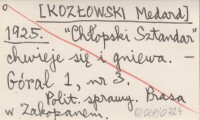 [KOZŁOWSKI Medard]
1925. "Chłopski Sztandar"
chwieje się i gniewa. –
Góral 1, nr 3.
Polit. sprawy. Prasa
w Zakopanem.